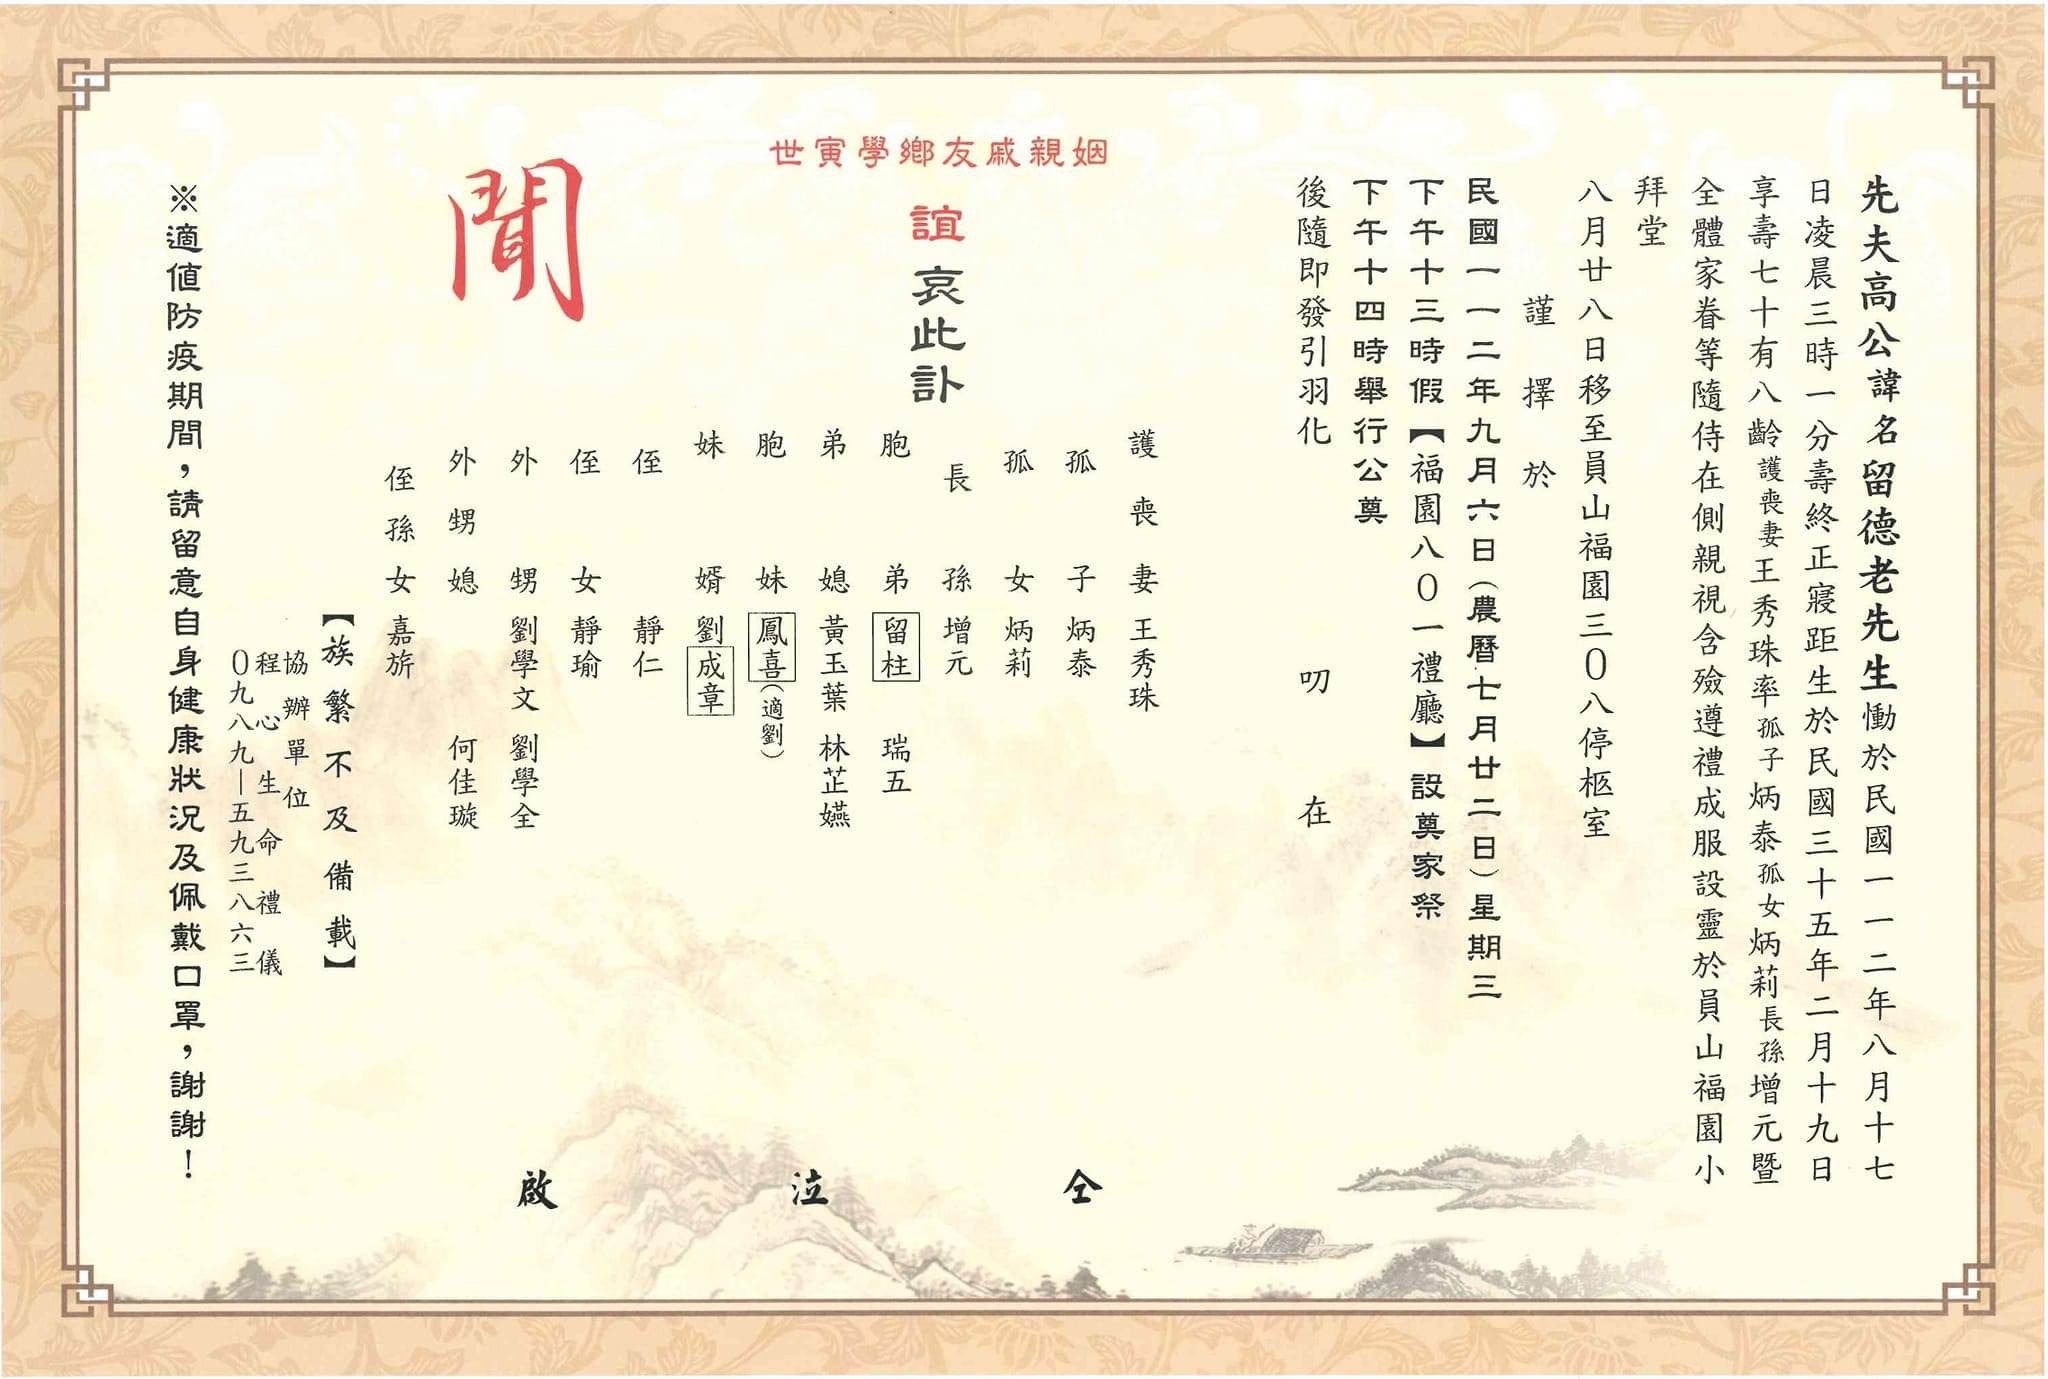 先夫高公諱名留德老先生慟於民國一一二年八月十七
日凌晨三時一分壽終正寢距生於民國三十五年二月十九日
享壽七十有八齡護喪妻王秀珠率孤子炳泰孤女炳莉長孫增元暨
全體家眷等隨侍在側親視含殮遵禮成服設靈於員山福園小
拜堂
八月廿八日移至員山福園三０八停柩室
謹擇於
民國一一二年九月六日(農曆七月廿二日)星期三
下午十三時假【福園八０一禮廳】設奠家祭
下午十四時舉行公奠
後隨即發引羽化 叨在
世寅學鄉友戚親姻
誼哀此訃
聞
護喪妻王秀珠
孤子炳泰
孤女炳莉
長孫增元
胞弟留柱 瑞五
弟媳黃玉葉 林芷嬿
胞妹鳳喜(適劉)
妹婿劉成章
侄靜仁
侄女靜瑜
外甥劉學文 劉學全
外甥媳何佳璇
侄孫女嘉旂
仝泣啟
【族繁不及備載】
協辦單位
程心生命禮儀
０九八九—五九三八六三
※適值防疫期間，請留意自身健康狀況及佩戴口罩，謝謝！